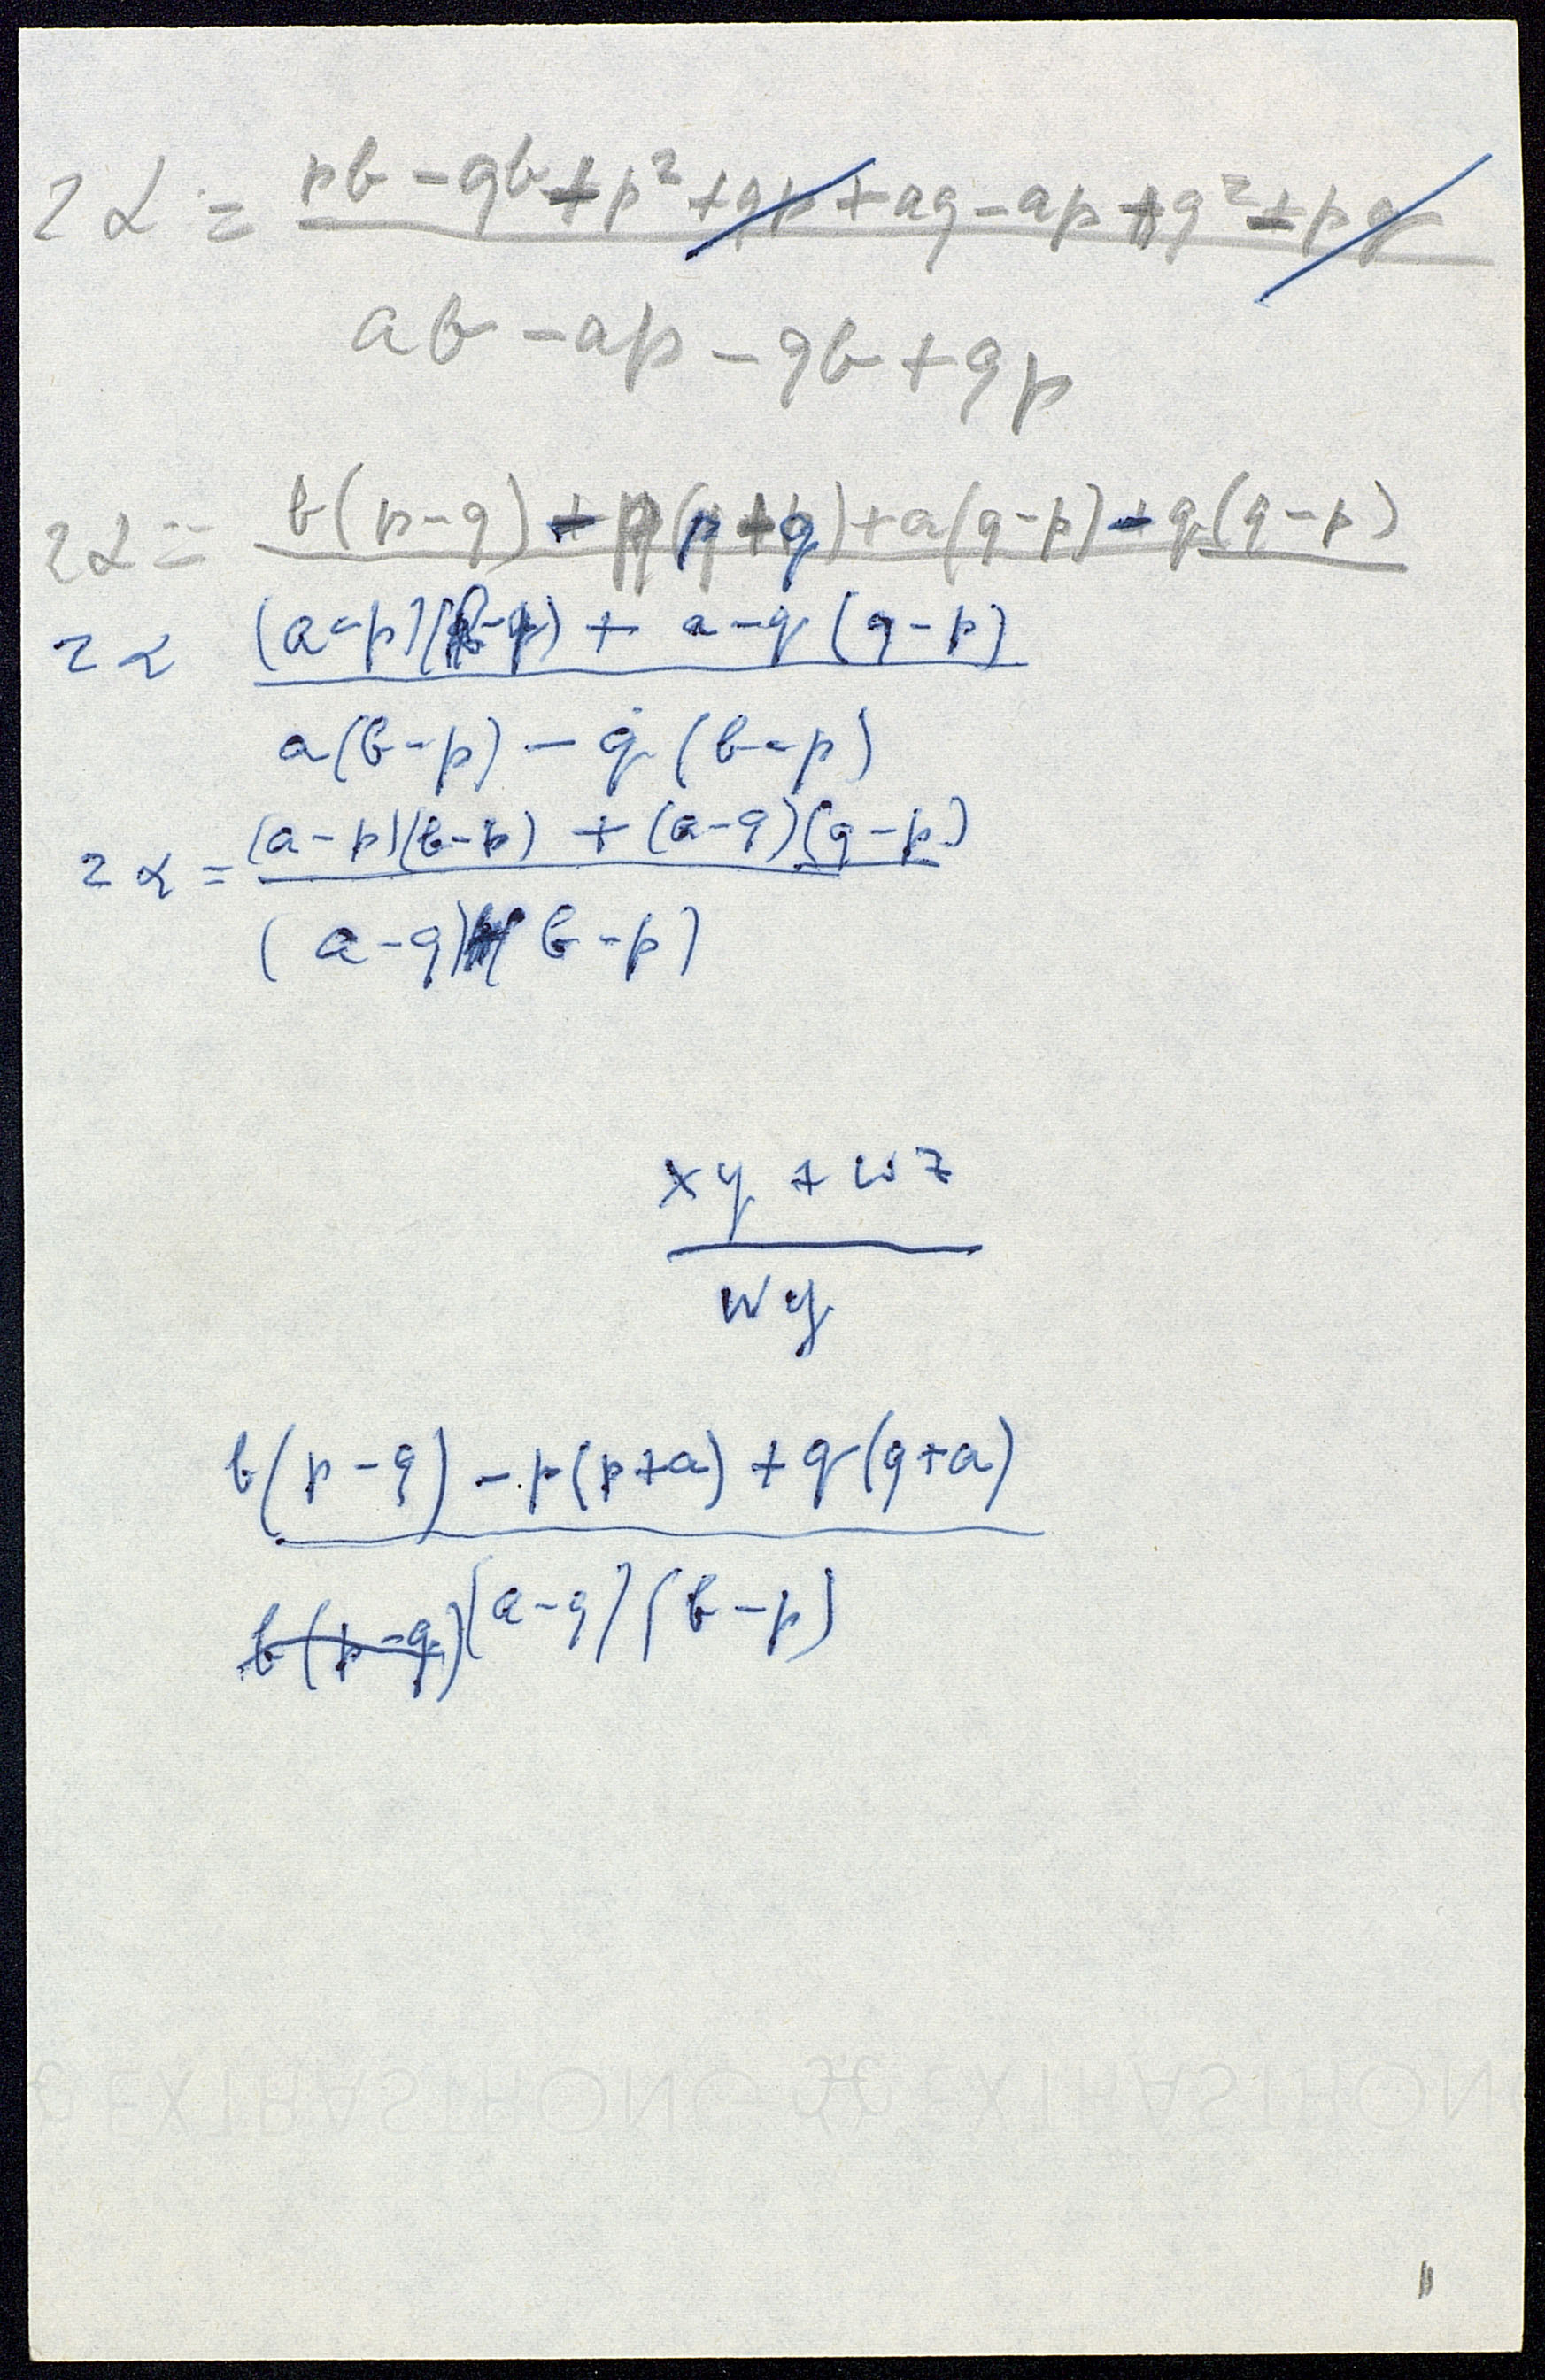 2α = pb - qb - p² + qp + aq - ap + q² - pq
ab - ap - qb + qp
2α = b(p-q) - p(p+q) + a(q-p) - q(q-p)
2α (a-p)(b-p) + a-q(q-p)
a(b-p) - q(b-p)
2α = (a-p)(b-p) + (a-q)(q-p)
(a-q)(b-p)
xy + wz
wy
b(p-q) - p(p+a) + q(q+a)
b(p-q) (a-q)(b-p)
EXTRASTRONG EXTRASTRON
11